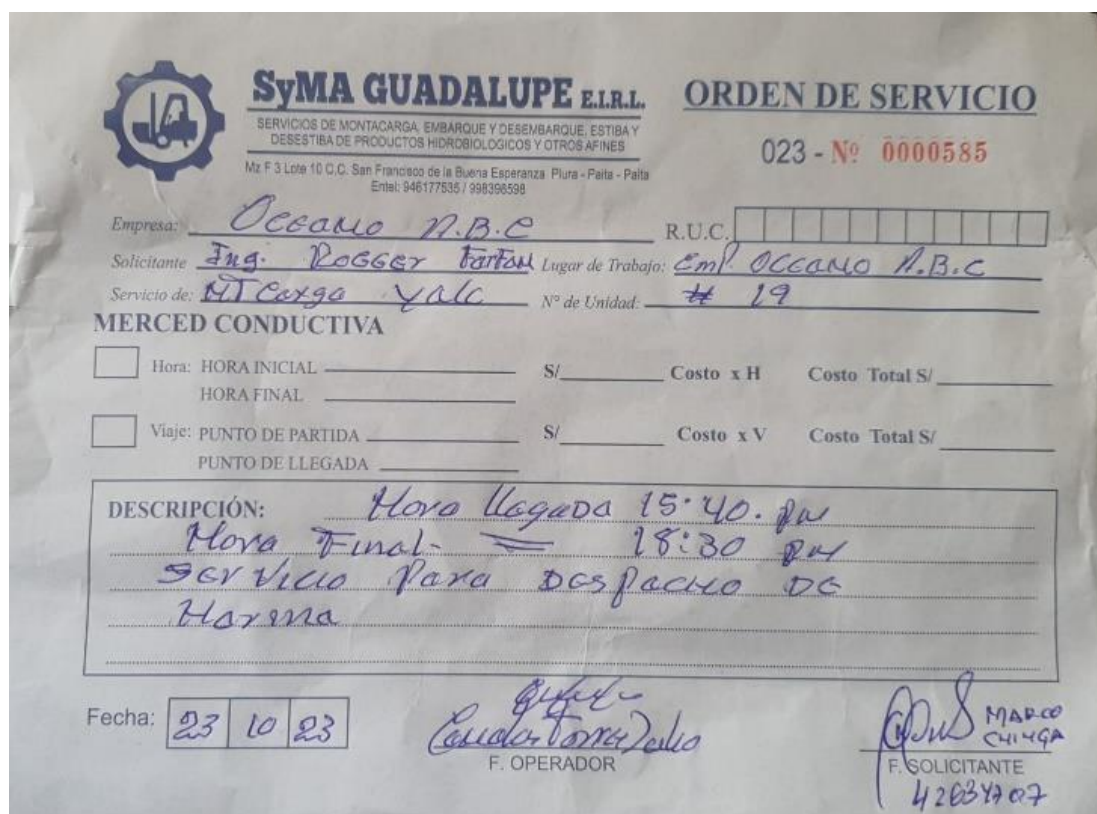 SyMA GUADALUPE E.I.R.L.
SERVICIOS DE MONTACARGA, EMBARQUE Y DESEMBARQUE, ESTIBA Y
DESESTIBA DE PRODUCTOS HIDROBIOLOGICOS Y OTROS AFINES
Mz F 3 Lote 10 C.C. San Francisco de la Buena Esperanza Piura - Paita - Paita
Entel: 946177535 / 998398598
ORDEN DE SERVICIO
023 - Nº 0000585
Empresa: Occano A.B.C R.U.C.
Solicitante Ing. Rogger Farfan Lugar de Trabajo: Emp. Occano A.B.C
Servicio de: MT Carga Yale Nº de Unidad: # 19
MERCED CONDUCTIVA
Hora: HORA INICIAL S/ Costo x H Costo Total S/
HORA FINAL
Viaje: PUNTO DE PARTIDA S/ Costo x V Costo Total S/
PUNTO DE LLEGADA
DESCRIPCIÓN: Hora llegada 15:40. pm
Hora Final - 18:30 pm
Servicio Para Despacho de
Harina
Fecha: 23 10 23
F. OPERADOR
MARCO
CHINGA
F. SOLICITANTE